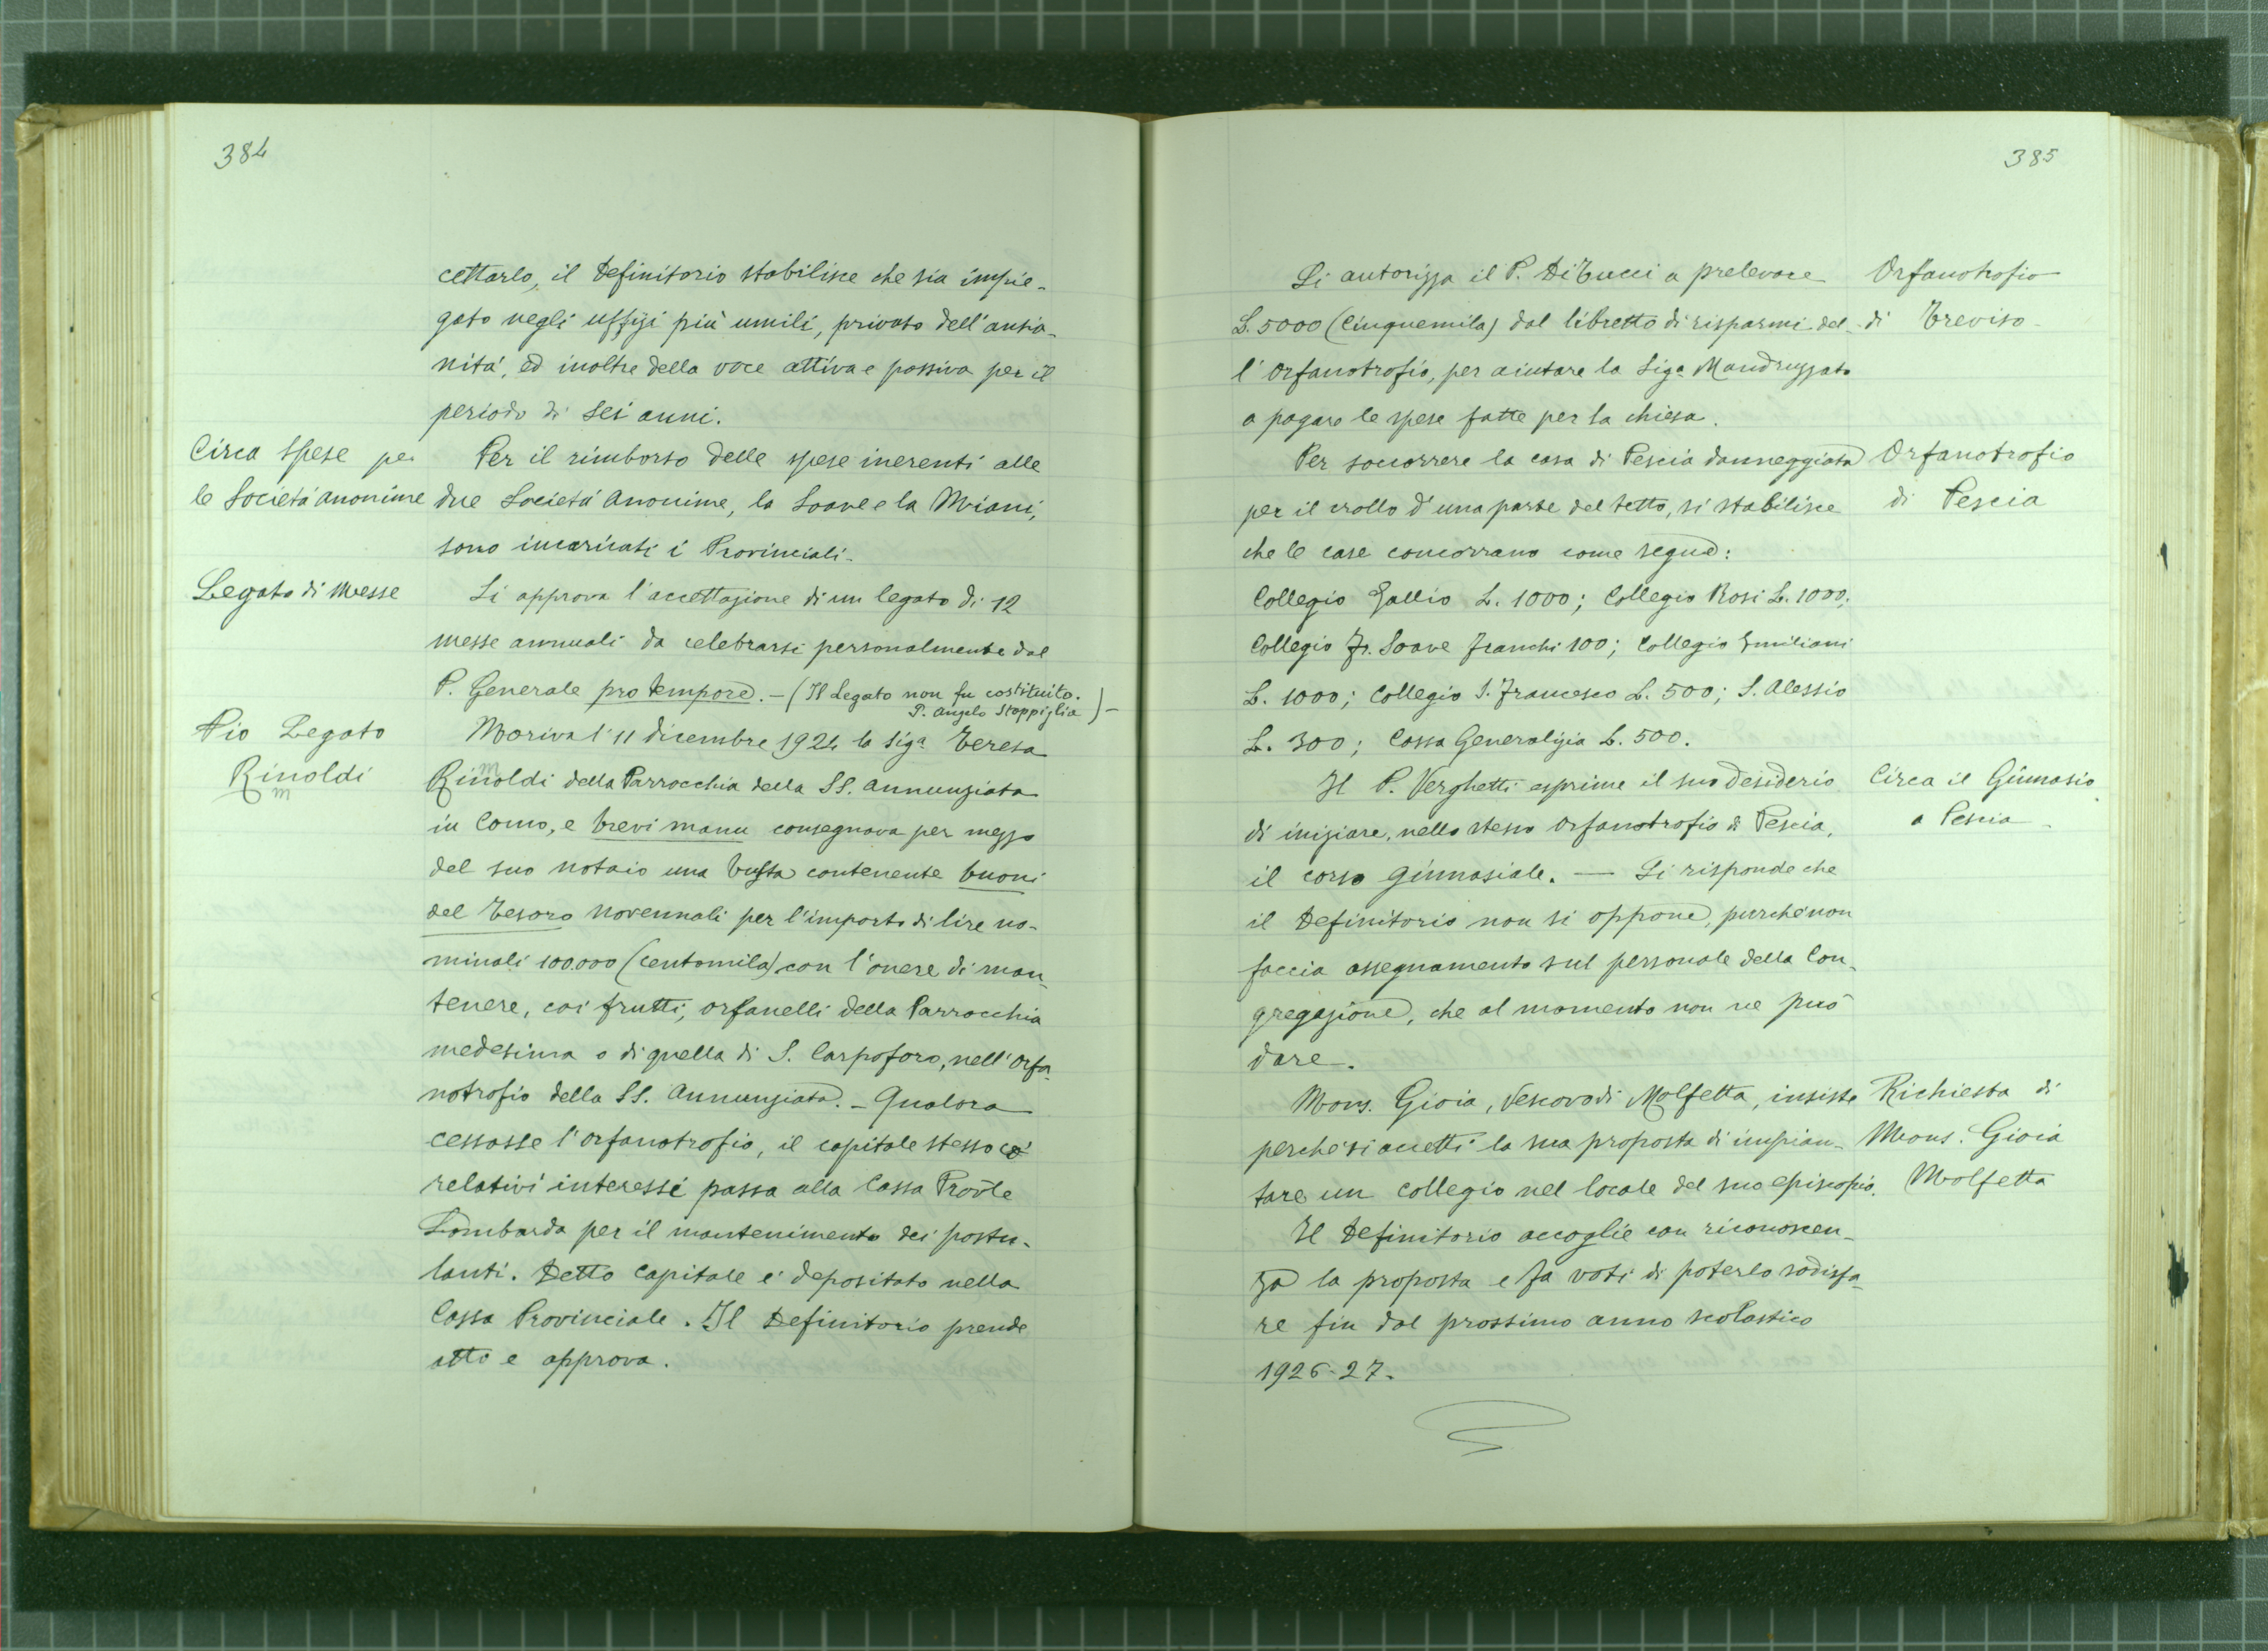 384
cettarlo, il Definitorio stabilisce che sia impie-
gato negli uffizi più umili, privato dell'anzia-
nità, ed inoltre della voce attiva e passiva per il
periodo di sei anni.
Circa spese per
le Società anonime
Per il rimborso delle spese inerenti alle
due Società Anonime, la Soave e la Miani,
sono incaricati i Provinciali.
Legato di Messe
Si approva l'accettazione di un legato di 12
messe annuali da celebrarsi personalmente dal
P. Generale pro tempore. - (Il Legato non fu costituito.
P. Angelo Stoppiglia) -
Pio Legato
Rinoldi
m
Moriva l'11 dicembre 1924 la Sigª Teresa
m
Rinoldi della Parrocchia della SS. Annunziata
in Como, e brevi manu consegnava per mezzo
del suo notaio una busta contenente buoni
del Tesoro novennali per l'importo di lire no-
minali 100.000 (centomila) con l'onere di man-
tenere, coi frutti, orfanelli della Parrocchia
medesima o di quella di S. Carpoforo, nell'Orfa-
notrofio della SS. Annunziata. - Qualora
cessasse l'Orfanotrofio, il capitale stesso co'
relativi interessi passa alla Cassa Provle
Lombarda per il mantenimento dei postu-
lanti. Detto capitale è depositato nella
Cassa Provinciale. Il Definitorio prende
atto e approva.
385
Si autorizza il P. Di Tucci a prelevare
L. 5000 (cinquemila) dal libretto di risparmi del-
l'Orfanotrofio, per aiutare la Sigª Mandruzzato
a pagare le spese fatte per la chiesa.
Orfanotrofio
di Treviso -
Per soccorrere la casa di Pescia danneggiata
per il crollo d'una parte del tetto, si stabilisce
che le case concorrano come segue:
Collegio Gallio L. 1000; Collegio Rosi L. 1000;
Collegio Fr. Soave franchi 100; Collegio Emiliani
L. 1000; Collegio S. Francesco L. 500; S. Alessio
L. 300; Cassa Generalizia L. 500.
Orfanotrofio
di Pescia
Il P. Verghetti esprime il suo desiderio
di iniziare, nello stesso Orfanotrofio di Pescia,
il corso ginnasiale. — Si risponde che
il Definitorio non si oppone, purchè non
faccia assegnamento sul personale della Con-
gregazione, che al momento non ne può
dare.
Circa il Ginnasio
a Pescia -
Mons. Gioia, Vescovo di Molfetta, insiste
perchè si accetti la sua proposta di impian-
tare un collegio nel locale del suo episcopio.
Il Definitorio accoglie con riconoscen-
za la proposta e fa voti di poterlo sodisfa-
re fin dal prossimo anno scolastico
1926-27.
Richiesta di
Mons. Gioia
Molfetta